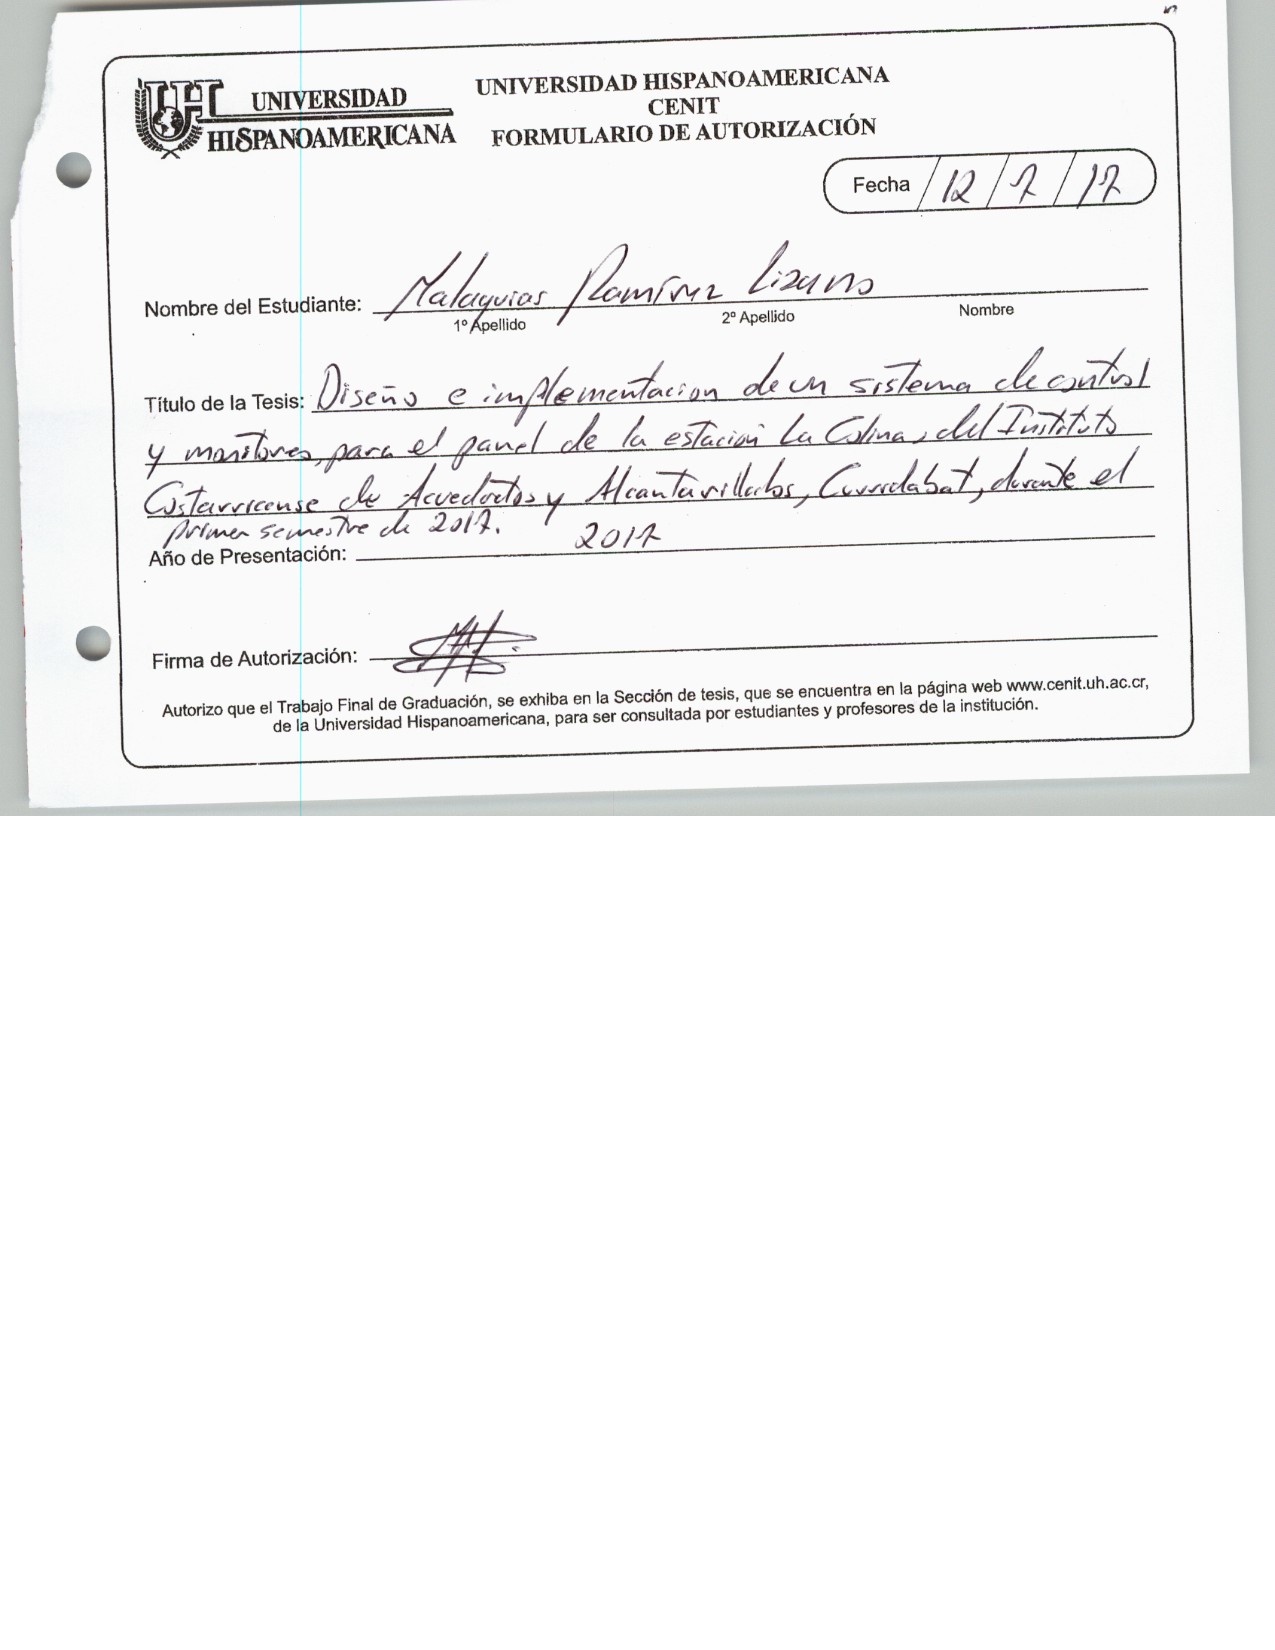 UNIVERSIDAD
HISPANOAMERICANA
UNIVERSIDAD HISPANOAMERICANA
CENIT
FORMULARIO DE AUTORIZACIÓN
Fecha 12/7/17
Nombre del Estudiante: Malaquias Ramírez Lizano
1º Apellido 2º Apellido Nombre
Título de la Tesis: Diseño e implementacion de un sistema de control
y monitoreo, para el panel de la estación La Colina, del Instituto
Costarricense de Acueductos y Alcantarillados, Curridabat, durante el
primer semestre de 2017.
Año de Presentación: 2017
Firma de Autorización:
Autorizo que el Trabajo Final de Graduación, se exhiba en la Sección de tesis, que se encuentra en la página web www.cenit.uh.ac.cr,
de la Universidad Hispanoamericana, para ser consultada por estudiantes y profesores de la institución.